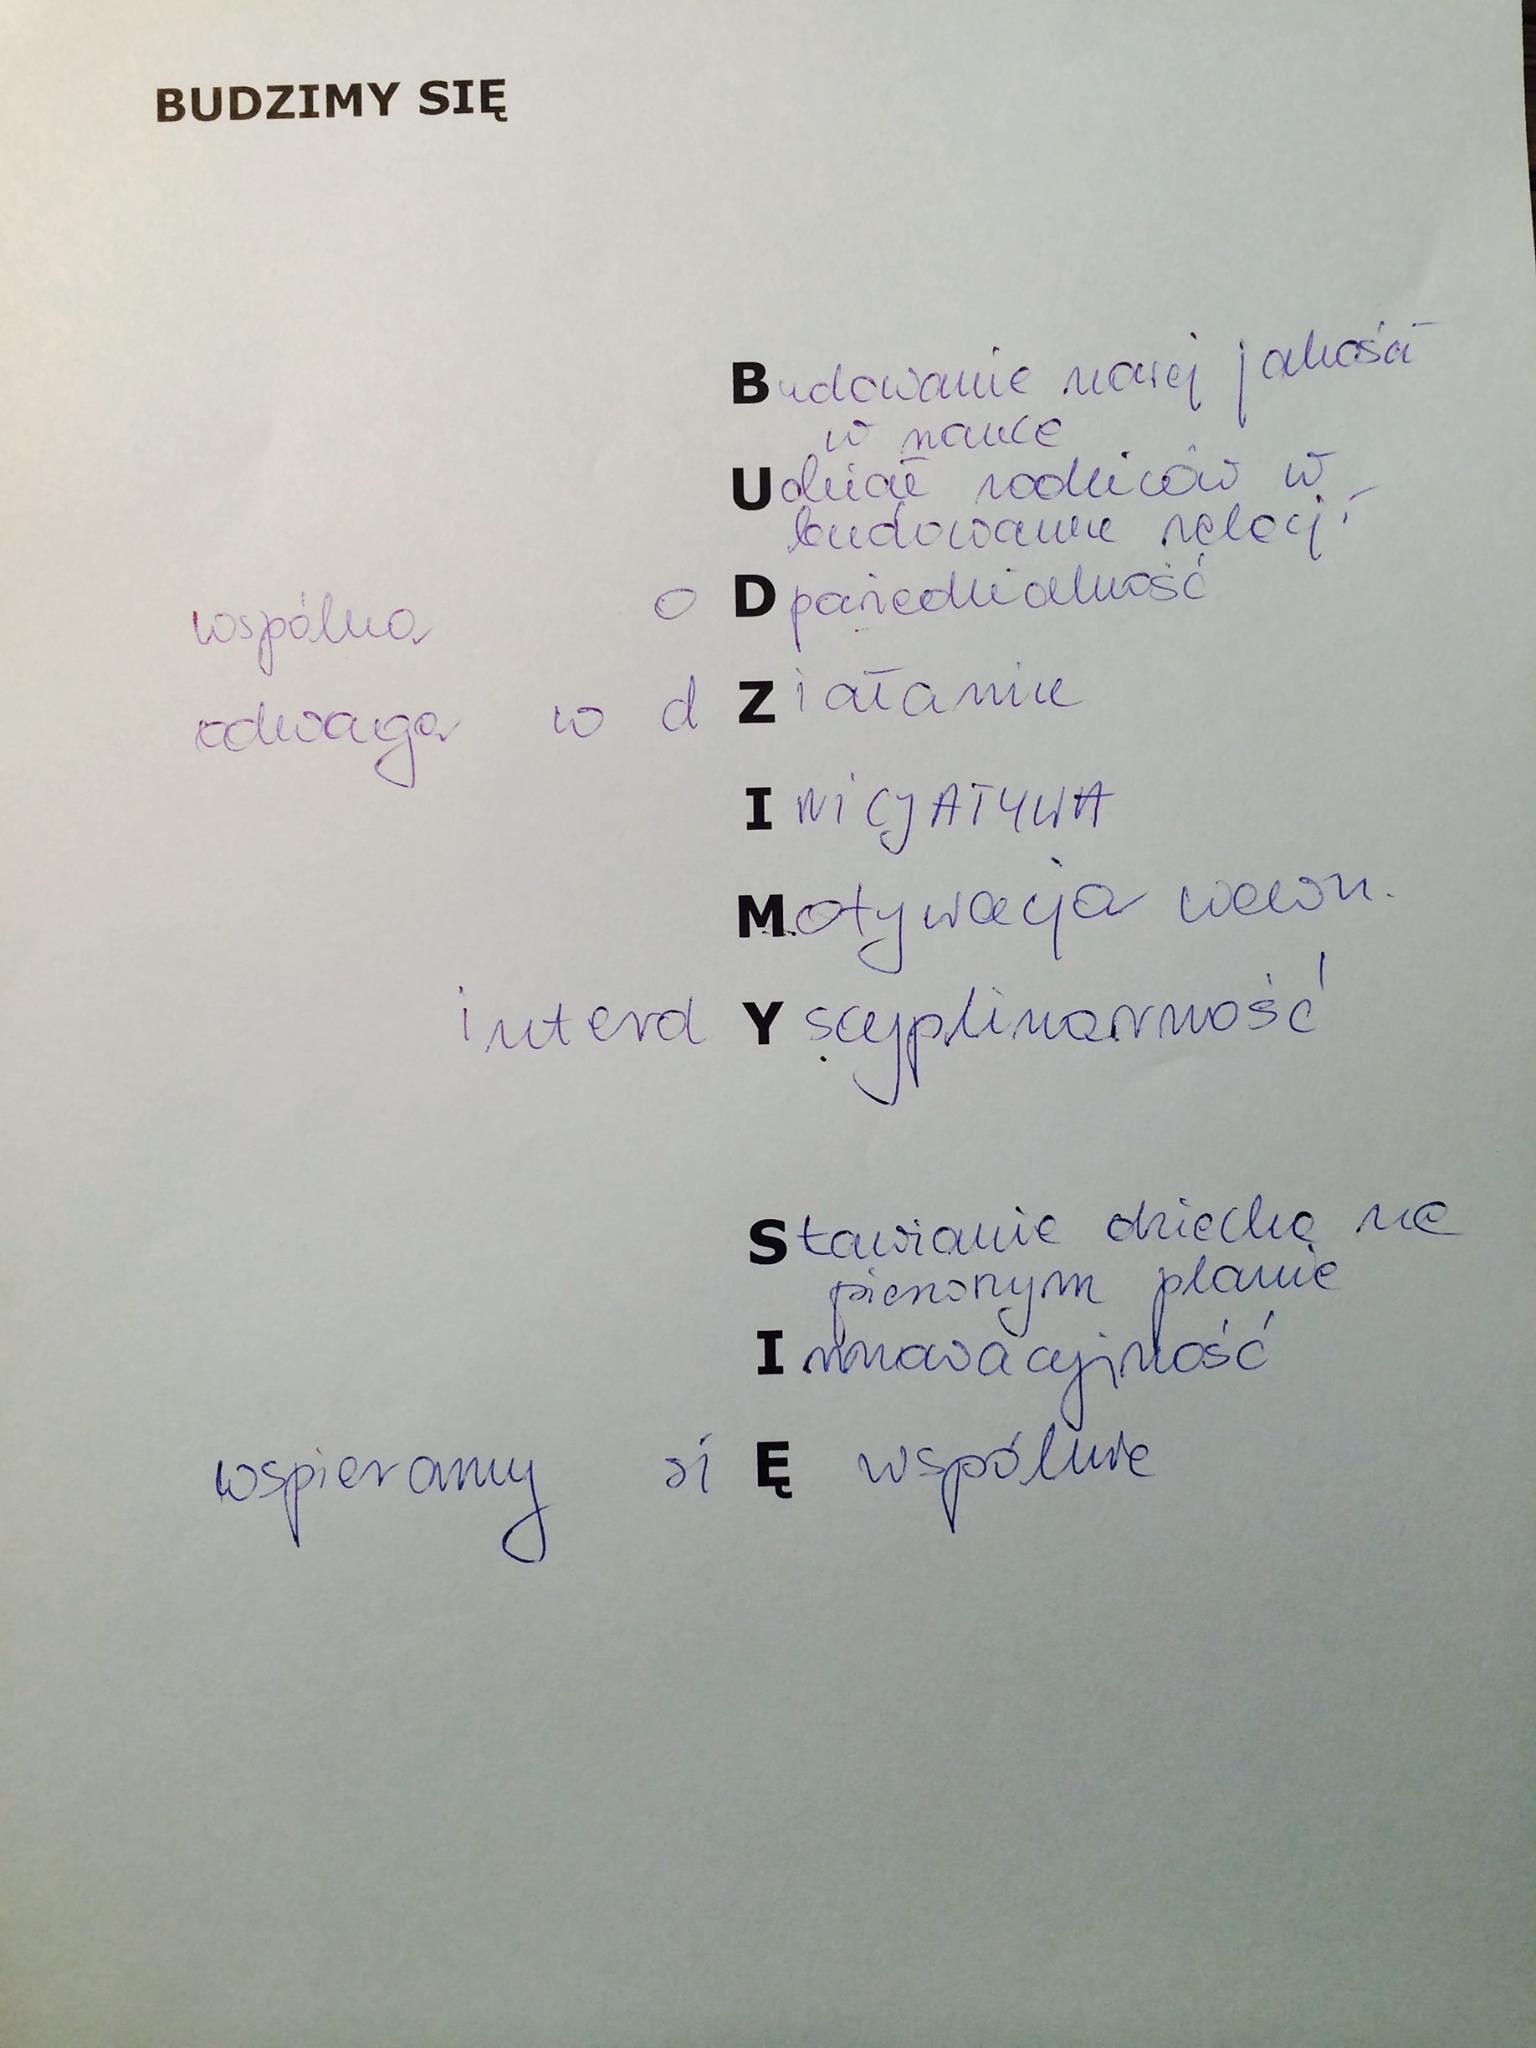 BUDZIMY SIĘ
Budowanie nowej jakości
w nauce
Udział rodziców w
budowaniu relacji
wspólna oDpowiedzialność
odwaga w dZiałaniu
INICJATYWA
Motywacja wewn.
interdYscyplinarność
Stawianie dziecka na
pierwszym planie
Innowacyjność
wspieramy siĘ wspólnie